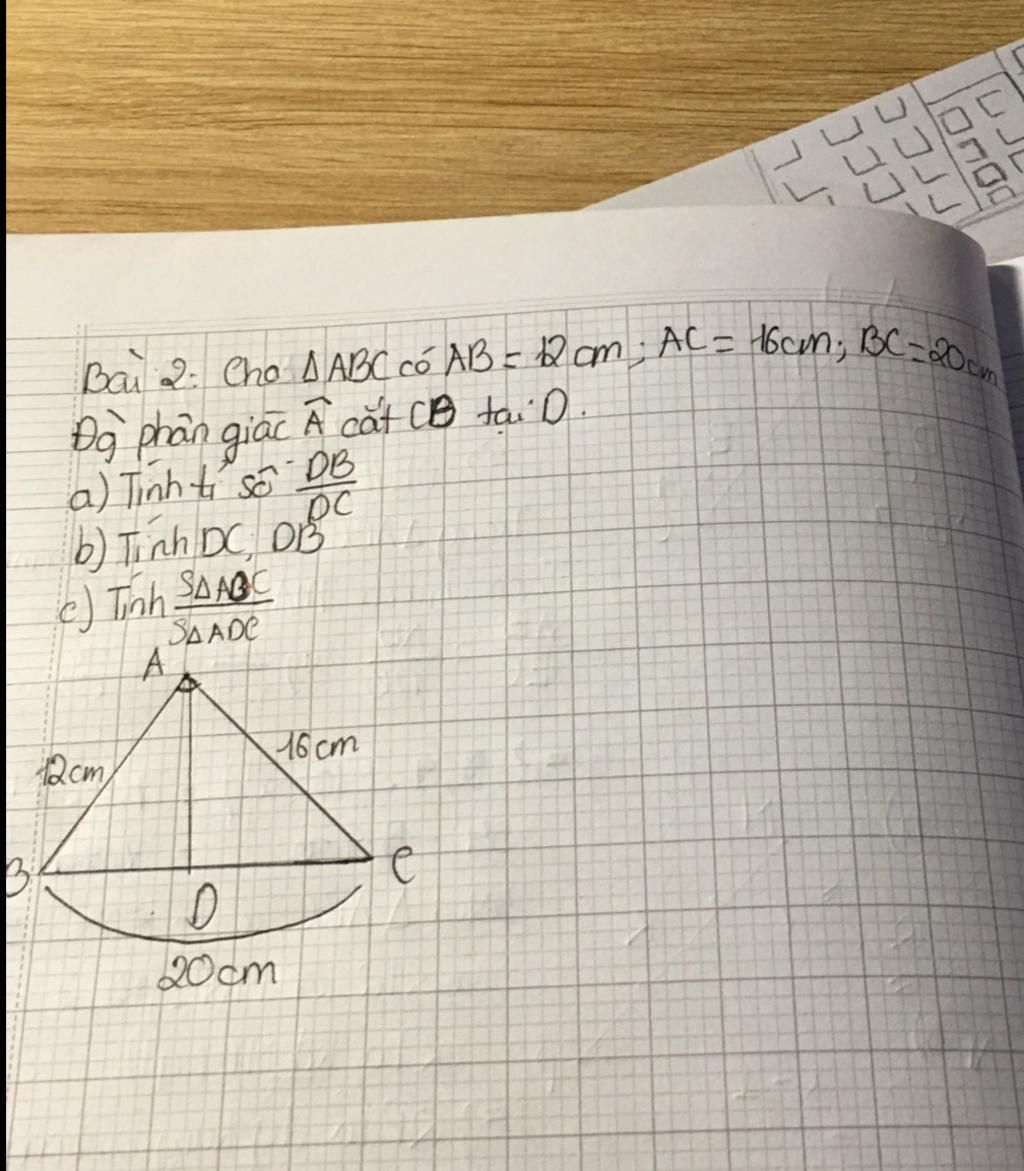 Bài 2: Cho ΔABC có AB = 12 cm; AC = 16cm; BC = 20cm
Đg phân giác Â cắt CB tại D.
a) Tính tỉ số DB/DC
b) Tính DC, DB
c) Tính SΔABC/SΔADC
A
12cm 16cm
B C
D
20cm